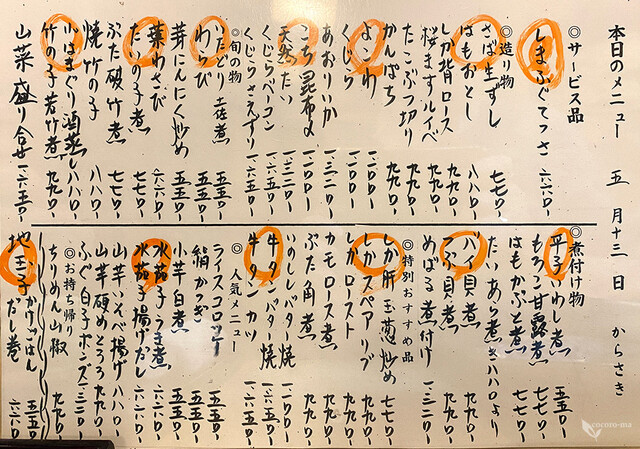 本日のメニュー 五月十三日 からさき
◎サービス品
しまふぐてっさ 六六〇ー
◎造り物
さば生ずし 七七〇ー
はもおとし 八八〇ー
しか背ロース 九九〇ー
桜ますルイベ 九九〇ー
たこぶつ切り 九九〇ー
かんぱち 九九〇ー
よこわ 一一〇〇ー
くじら 一一〇〇ー
あおりいか 一三二〇ー
こち昆布〆 一一〇〇ー
天然たい 一三二〇ー
くじらベーコン 一六五〇ー
くじらさえずり 一六五〇ー
◎旬の物
いたどり土佐煮 五五〇ー
わらび 五五〇ー
芽にんにく炒め 五五〇ー
葉わさび 六六〇ー
たいの子煮 七七〇ー
ぶた破竹煮 七七〇ー
焼竹の子 八八〇ー
小はまぐり酒蒸し 八八〇ー
竹の子若竹煮 九九〇ー
山菜盛り合せ 一六五〇ー
◎煮付け物
平子いわし煮 五五〇ー
もろこ甘露煮 七七〇ー
はもかぶと煮 七七〇ー
たいあら煮 八八〇より
バイ貝煮 九九〇ー
つぶ貝煮 九九〇ー
めばる煮付け 一三二〇ー
◎特別おすすめ品
しか肝玉葱炒め 九九〇ー
しかスペアリブ 七七〇ー
しかロースト 九九〇ー
カモロース煮 九九〇ー
ぶた角煮 九九〇ー
いのししバタ焼 一一〇〇ー
牛タンバタ焼 一六五〇ー
牛タンカツ 一六五〇ー
◎人気メニュー
ライスコロッケ 五五〇ー
絹かつぎ 五五〇ー
小芋白煮 五五〇ー
水茄子うま煮 六六〇ー
水茄子揚げだし 六六〇ー
山芋いそべ揚げ 八八〇ー
山芋硬めとろろ 九九〇ー
ふぐ白子ポンズ 一三二〇ー
◎お持ち帰り
ちりめん山椒 九九〇ー
地玉子かけごはん 五五〇ー
だし巻 六六〇ー
cocoro-ma